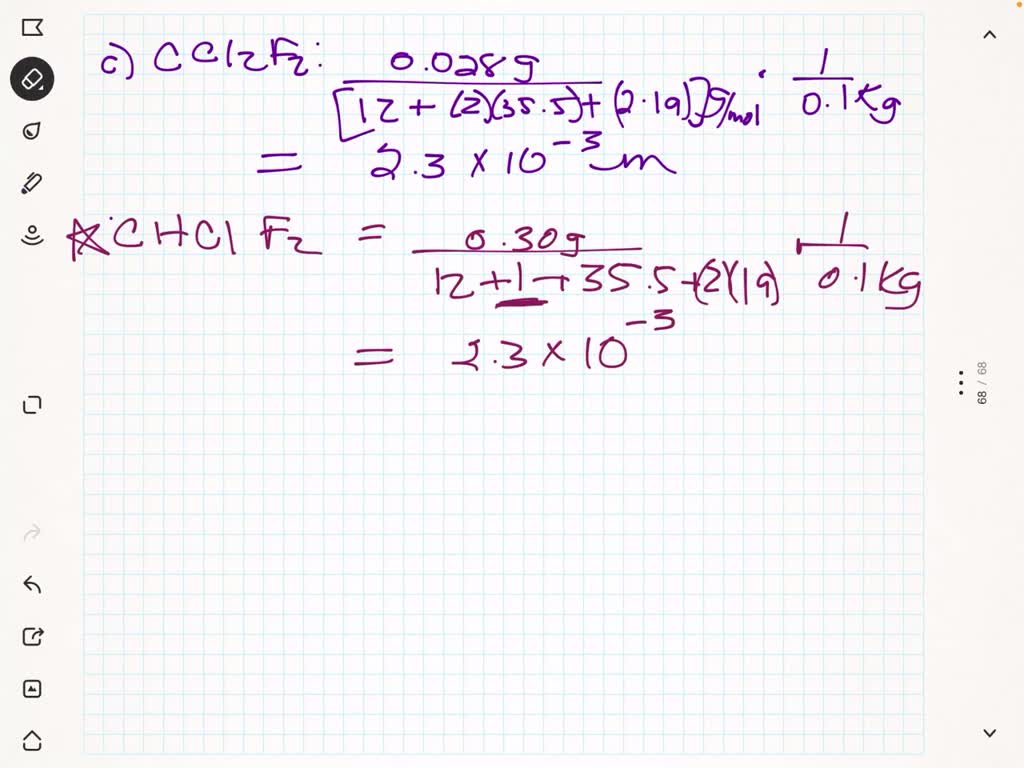 c) CCl2F2: 0.028g / [12 + (2)(35.5) + (2·19)]g/mol · 1 / 0.1Kg
= 2.3 × 10^-3 m
☆ CHClF2 = 0.30g / 12+1+35.5+(2)(19) 1 / 0.1Kg
= 2.3 × 10^-3
68 / 68